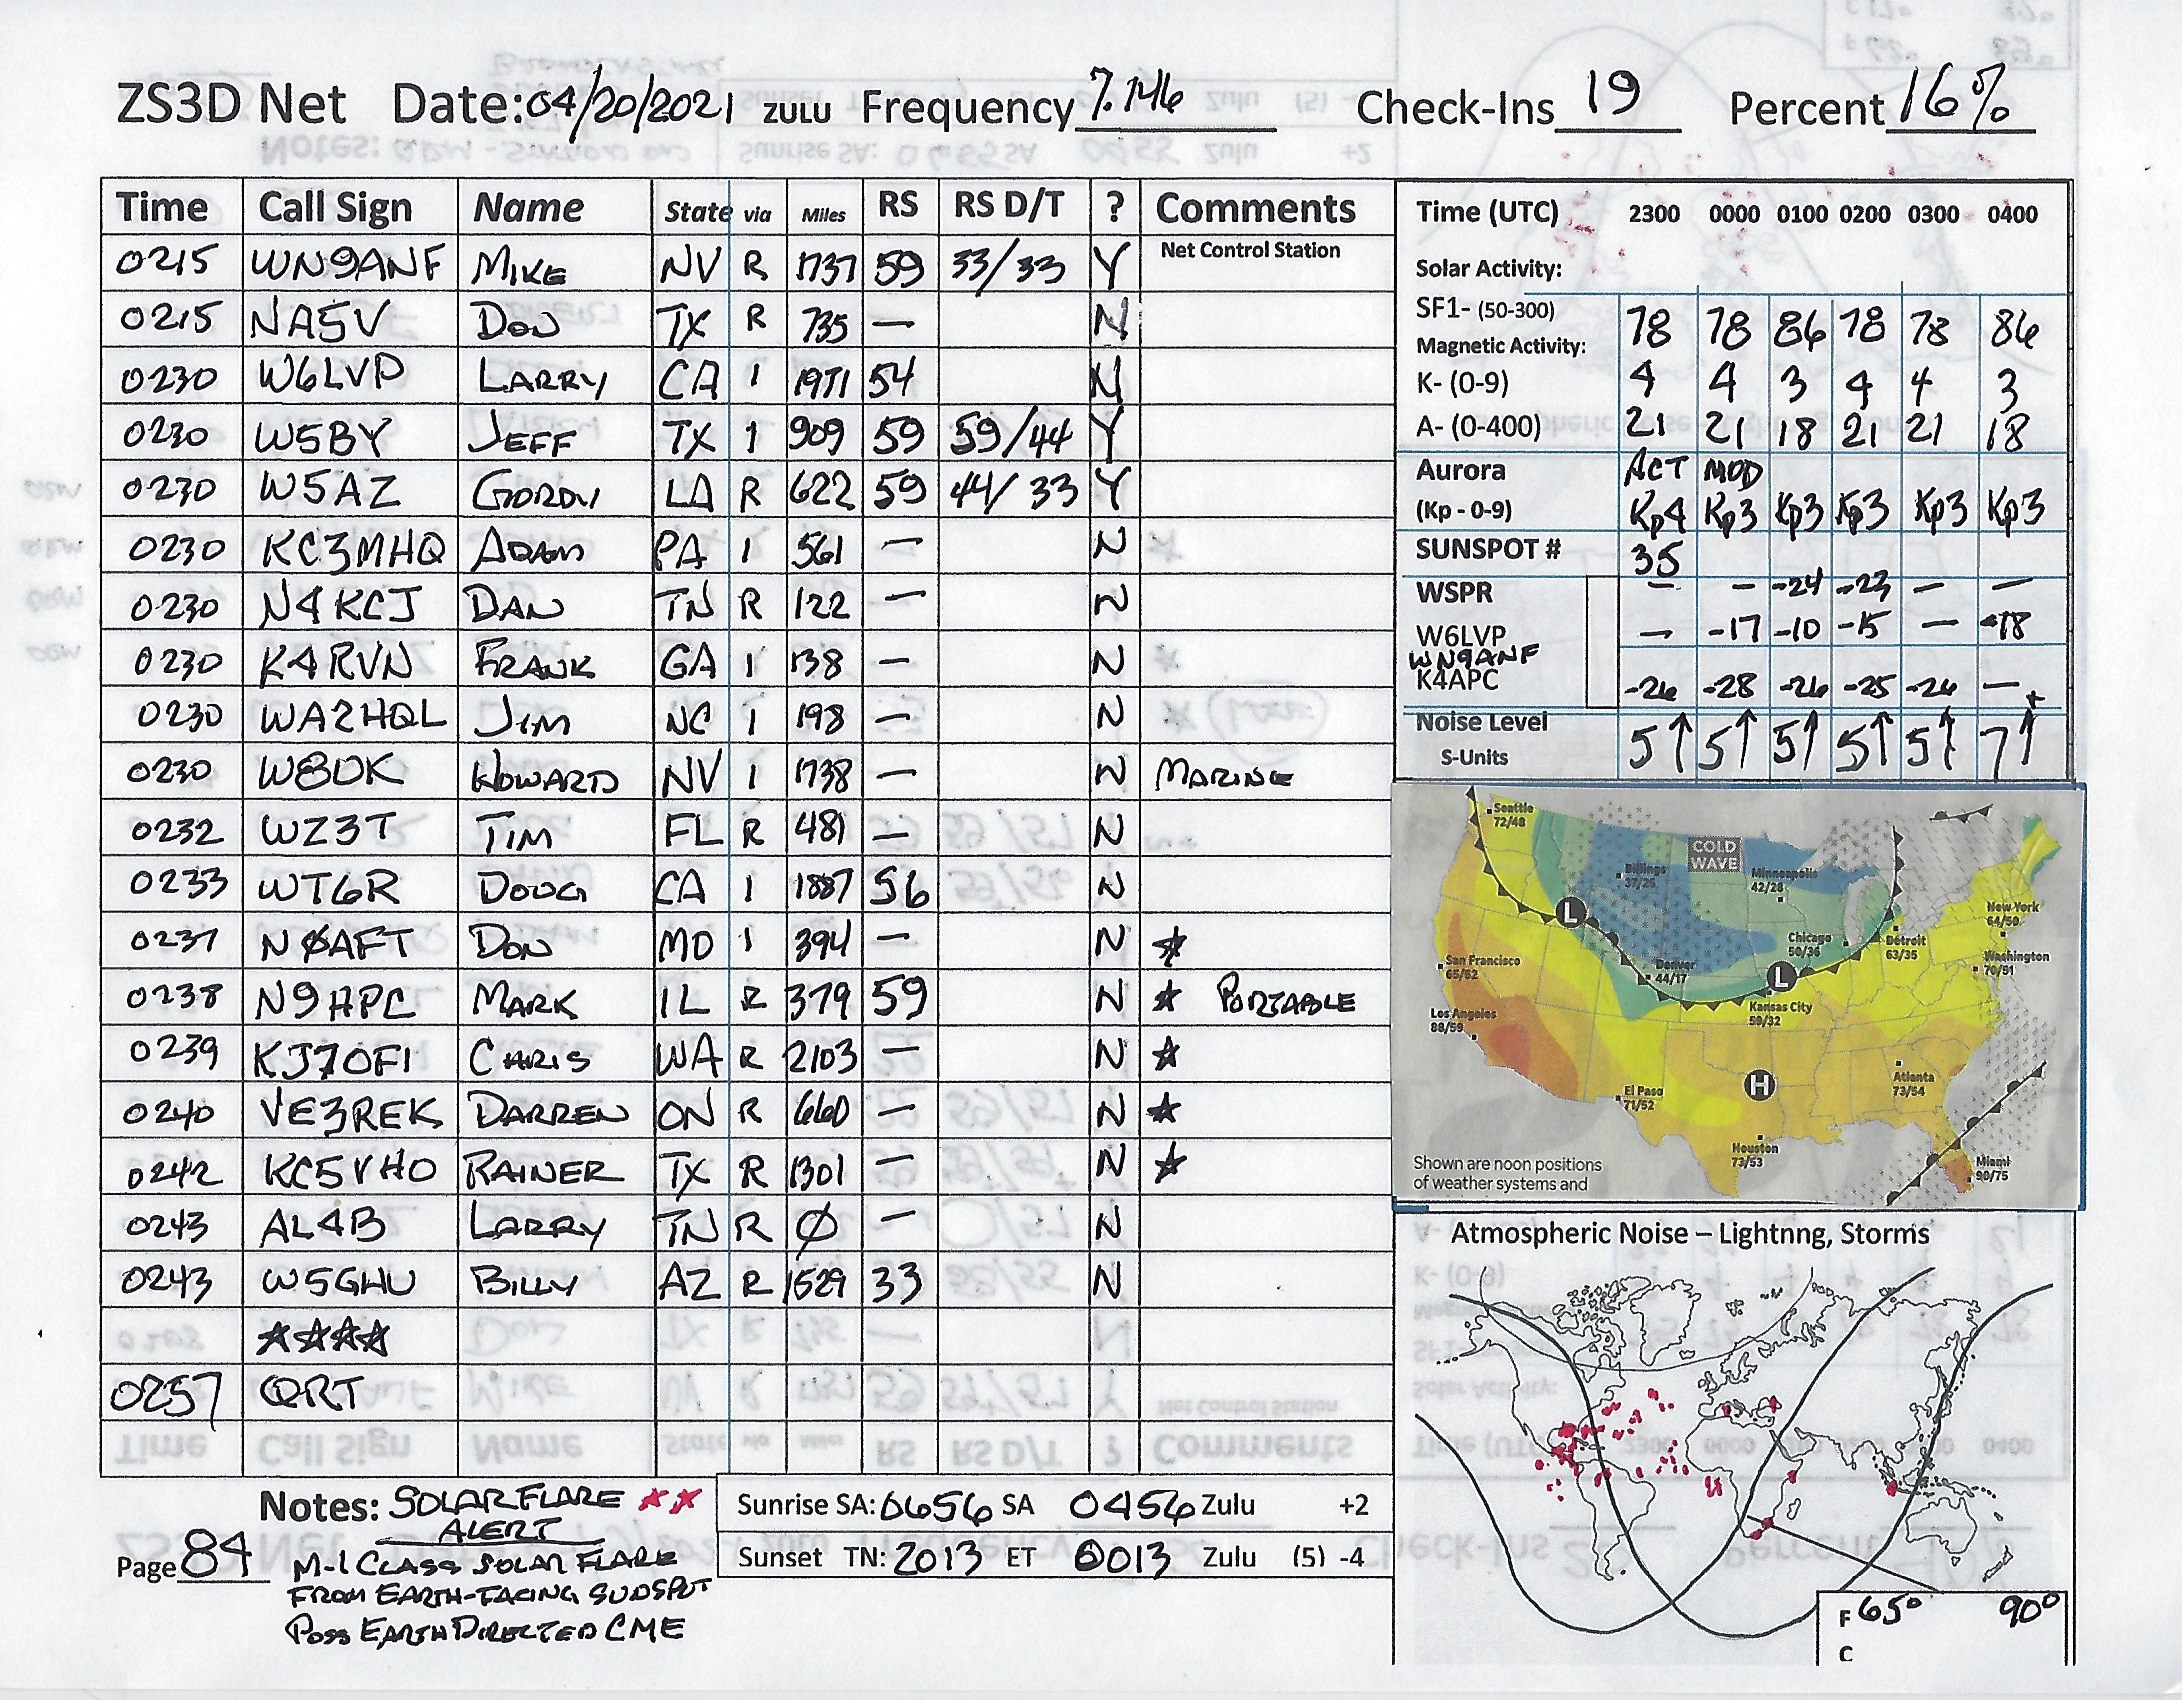 ZS3D Net Date: 04/20/2021 ZULU Frequency 7.146 Check-Ins 19 Percent 16%
Time Call Sign Name State via Miles RS RS D/T ? Comments
0215 WN9ANF MIKE NV R 1737 59 33/33 Y Net Control Station
0215 NA5V DON TX R 735 — N
0230 W6LVP LARRY CA 1 1971 54 N
0230 W5BY JEFF TX 1 909 59 59/44 Y
0230 W5AZ GORDY LA R 622 59 44/33 Y
0230 KC3MHQ ADAM PA 1 561 — N
0230 N4KCJ DAN TN R 122 — N
0230 K4RVN FRANK GA 1 138 — N
0230 WA2HQL JIM NC 1 198 — N
0230 W8DK HOWARD NV 1 1738 — N MARINE
0232 WZ3T TIM FL R 481 — N
0233 WT6R DOUG CA 1 1887 56 N
0237 NØAFT DON MO 1 394 — N ★
0238 N9HPC MARK IL R 379 59 N ★ PORTABLE
0239 KJ7OFI CHRIS WA R 2103 — N ★
0240 VE3REK DARREN ON R 660 — N ★
0242 KC5VHO RAINER TX R 1301 — N ★
0243 AL4B LARRY TN R Ø — N
0243 W5GHU BILLY AZ R 1529 33 N
★★★★
0257 QRT
Notes: SOLAR FLARE ★★
ALERT
Page 84
M-1 CLASS SOLAR FLARE
FROM EARTH-FACING SUNSPOT
POSS EARTH DIRECTED CME
Sunrise SA: 0656 SA 0456 Zulu +2
Sunset TN: 2013 ET 0013 Zulu (5) -4
Time (UTC) 2300 0000 0100 0200 0300 0400
Solar Activity:
SF1- (50-300) 78 78 86 78 78 86
Magnetic Activity:
K- (0-9) 4 4 3 4 4 3
A- (0-400) 21 21 18 21 21 18
Aurora ACT MOD
(Kp - 0-9) Kp4 Kp3 Kp3 Kp3 Kp3 Kp3
SUNSPOT # 35
WSPR — — -24 -23 — —
W6LVP — -17 -10 -15 — -18
WN9ANF
K4APC -26 -28 -26 -25 -26 —
Noise Level 5↑ 5↑ 5↑ 5↑ 5↑ 7↑+
S-Units
Seattle
72/48
COLD
WAVE
Billings
37/25
Minneapolis
42/28
New York
64/50
Chicago
50/36
Detroit
63/35
San Francisco
65/52
Denver
44/17
Washington
70/51
L
L
Kansas City
59/32
Los Angeles
88/59
H
Atlanta
73/54
El Paso
71/52
Houston
73/53
Miami
90/75
Shown are noon positions
of weather systems and
Atmospheric Noise – Lightnng, Storms
F 65° 90°
C